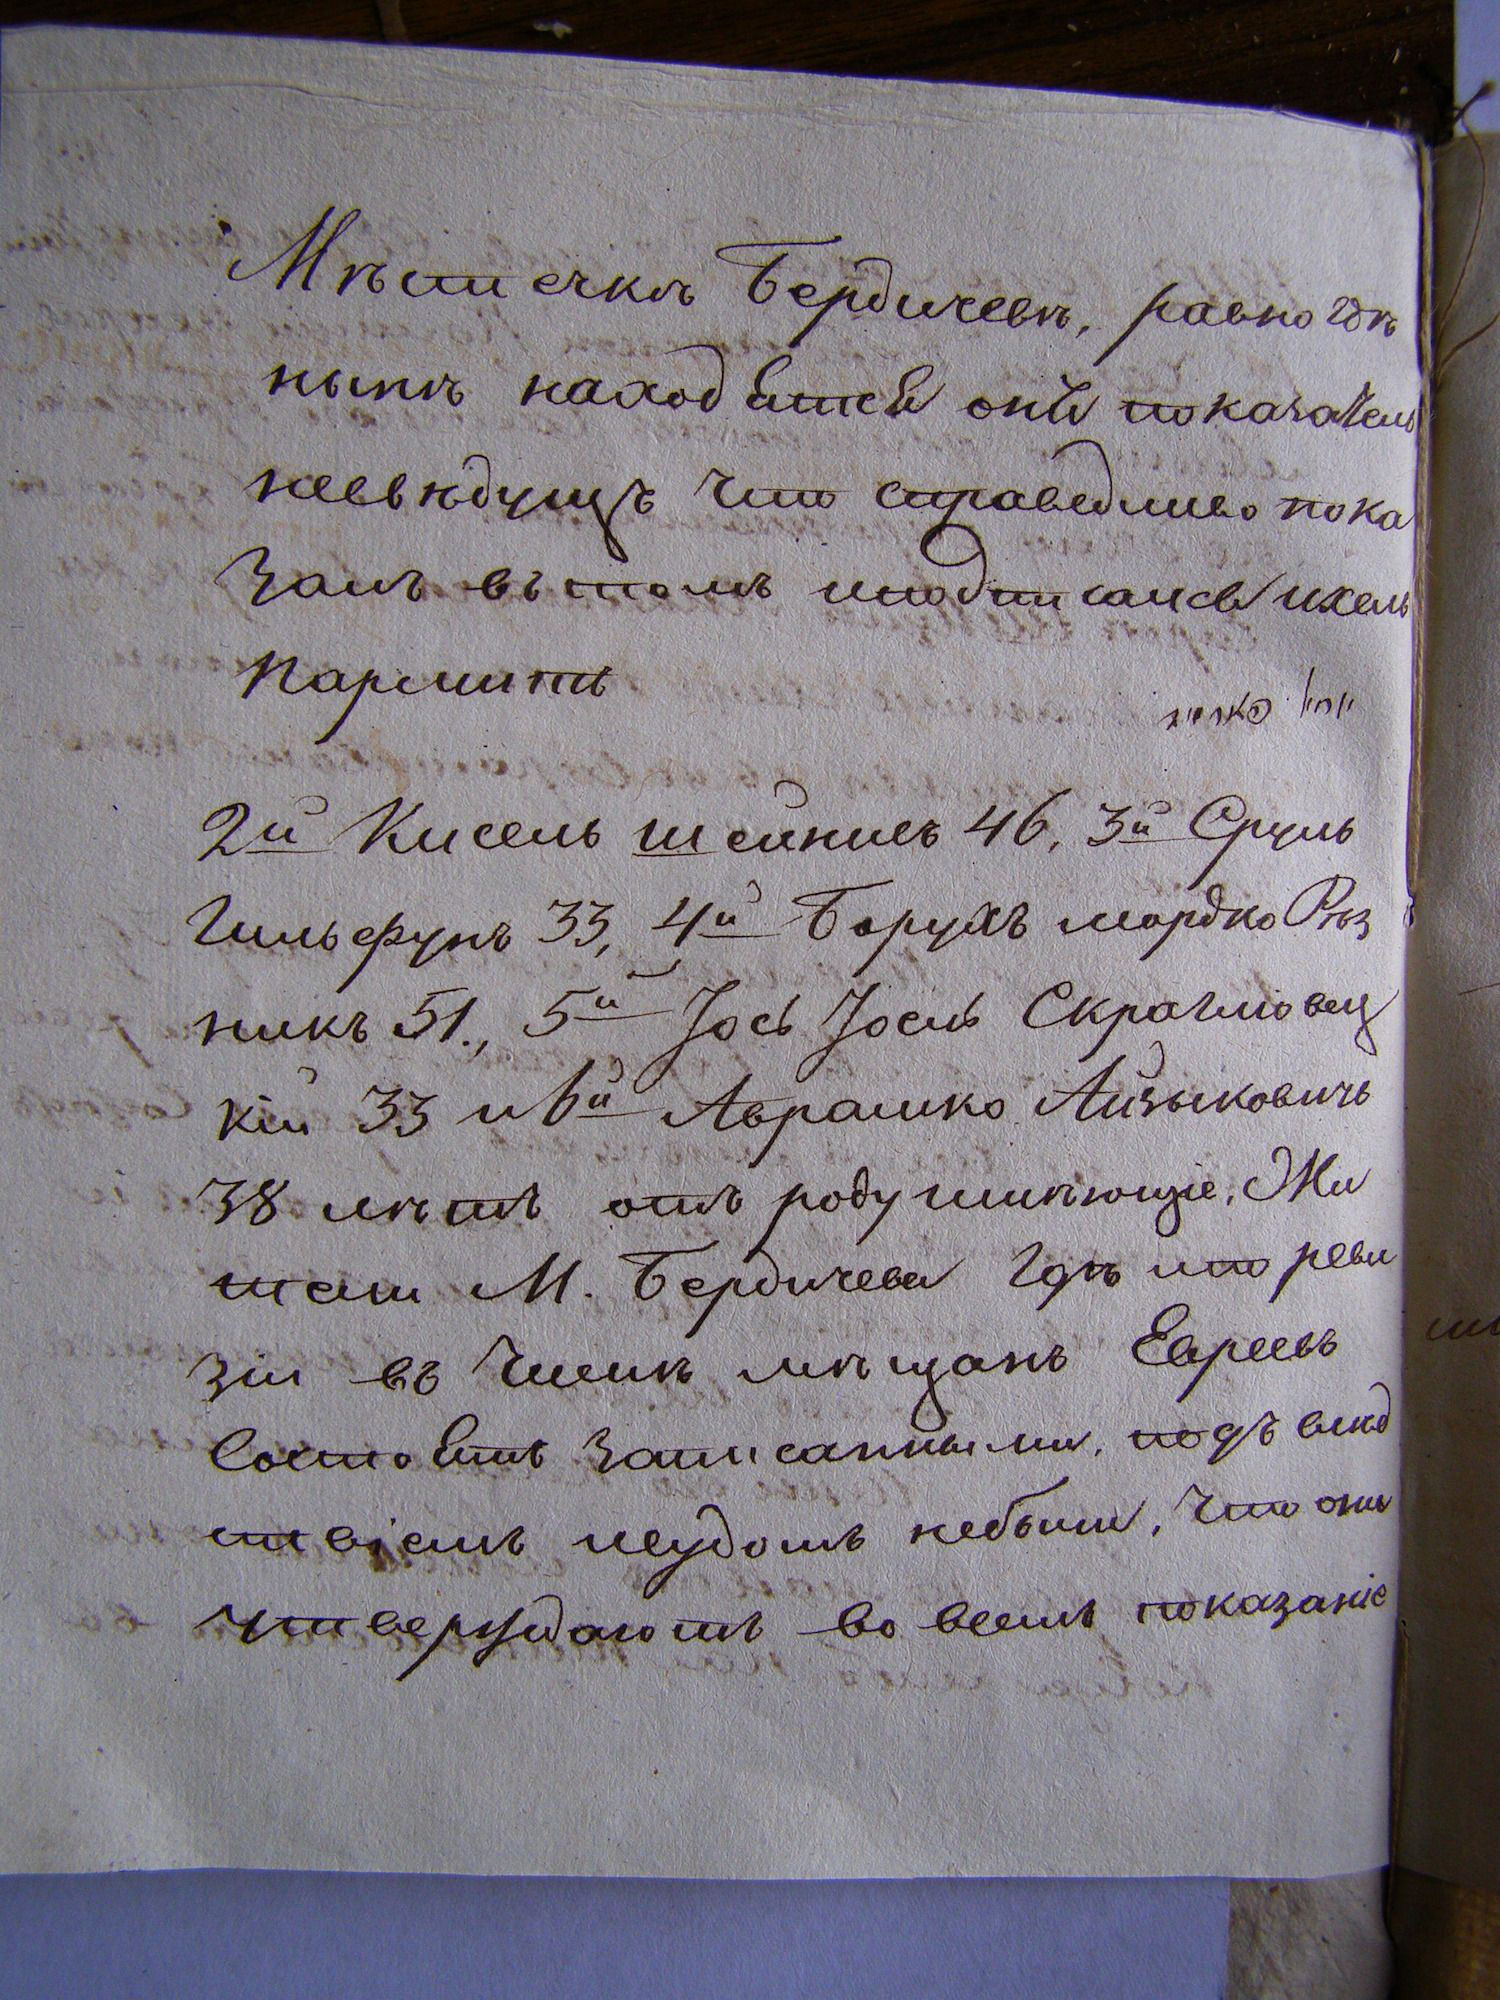 Мѣстечкѣ Бердичевѣ, равно гдѣ
нынѣ находятся онй показатель
невѣдущъ что справедливо пока
залъ втомъ иподписался ихель
Пармитъ
2й Кисель шейнисъ 46, 3й Сруль
Гильфунъ 33, 4й Борухъ мордко Рѣз
никъ 51., 5й Іось Іосль Скраглiовец
кій 33 и 6й Аврамко Айзыковичъ
38 лѣтъ отъ роду имѣющіе, Жи
тели М. Бердичева гдѣ ипо реви
зіи въ числѣ мѣщанъ Евреевъ
состоятъ записанными, подъ слѣд
ствіемъ исудомъ небыли, что они
утверждаютъ во всемъ показаніе